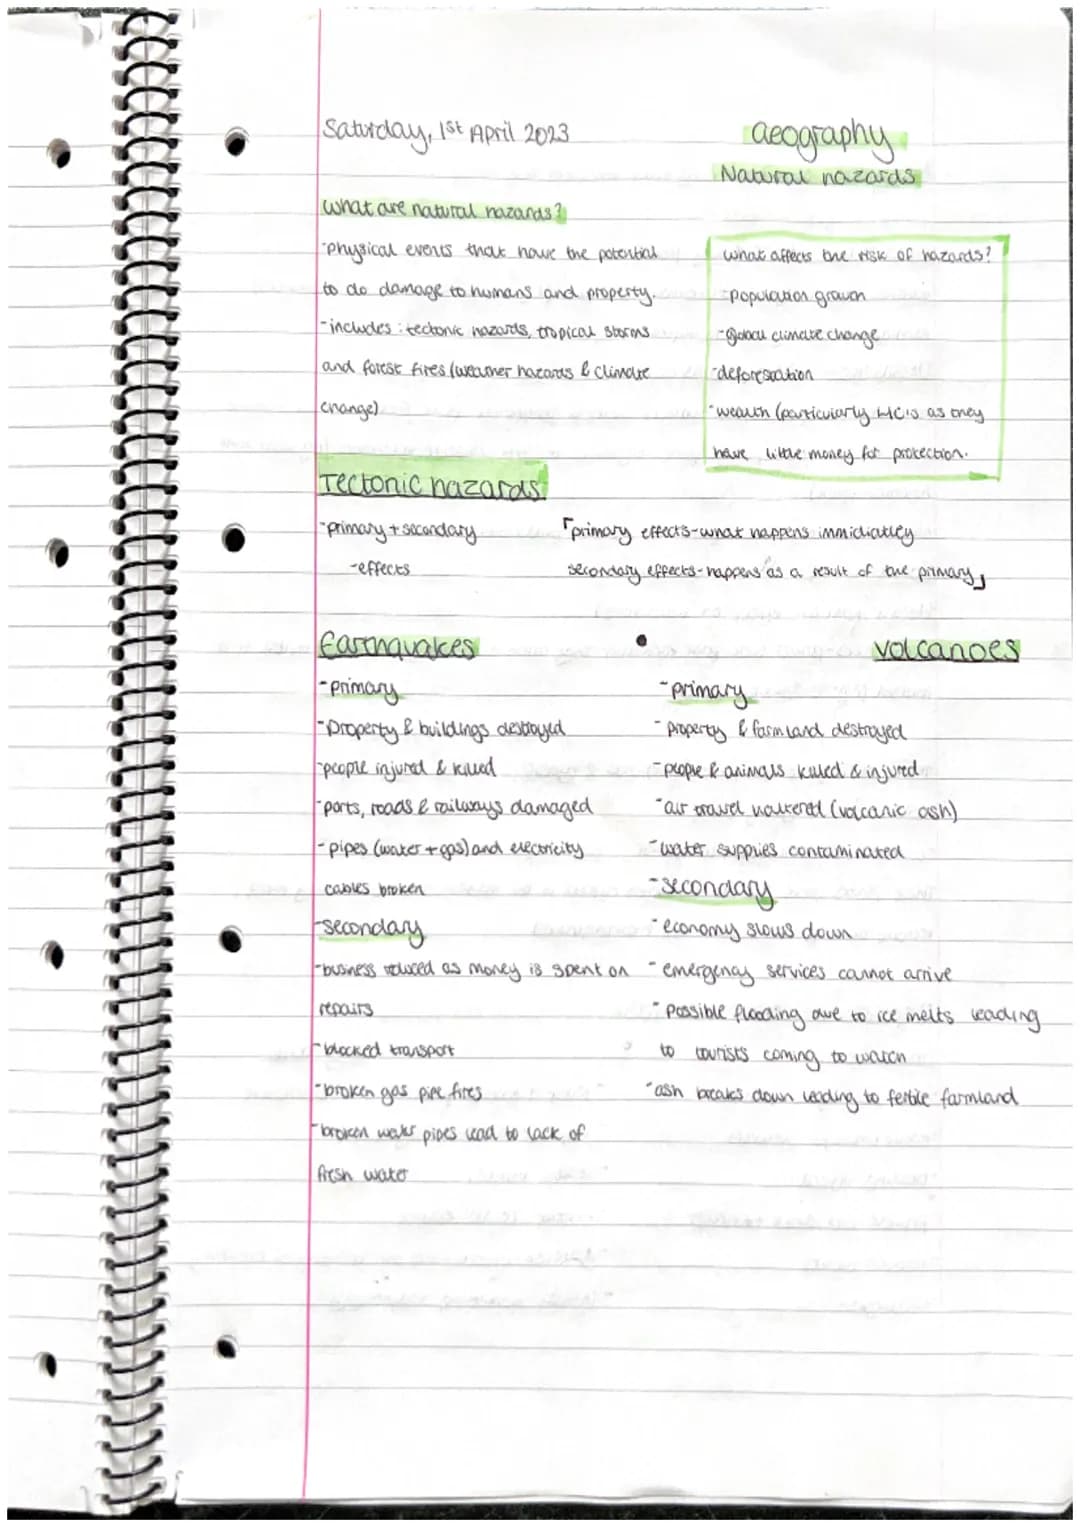 Saturday, 1st April 2023
Geography
Natural hazards
what are natural hazards?
-physical events that have the potential
to do damage to humans and property.
-includes: tectonic hazards, tropical storms
and forest fires (weather hazards & climate
change)
what affects the risk of hazards?
-population growth
-global climate change
-deforestation
-wealth (particularly LIC's as they
have little money for protection.
Tectonic hazards
-primary + secondary
-effects
primary effects-what happens immidiatley
secondary effects-happens as a result of the primary
Earthquakes
-primary
-Property & buildings destroyed
-people injured & killed
-ports, roads & railways damaged
-pipes (water + gas) and electricity
cables broken
-secondary
-business reduced as money is spent on
repairs
-blocked transport
-broken gas pipe fires
-broken water pipes lead to lack of
fresh water
volcanoes
-primary
-property & farmland destroyed
-people & animals killed & injured
-air travel (volcanic ash)
-water supplies contaminated
-secondary
-economy slows down
-emergency services cannot arrive
-possible flooding due to ice melts leading
to tourists coming to watch
-ash breaks down leading to fertile farmland